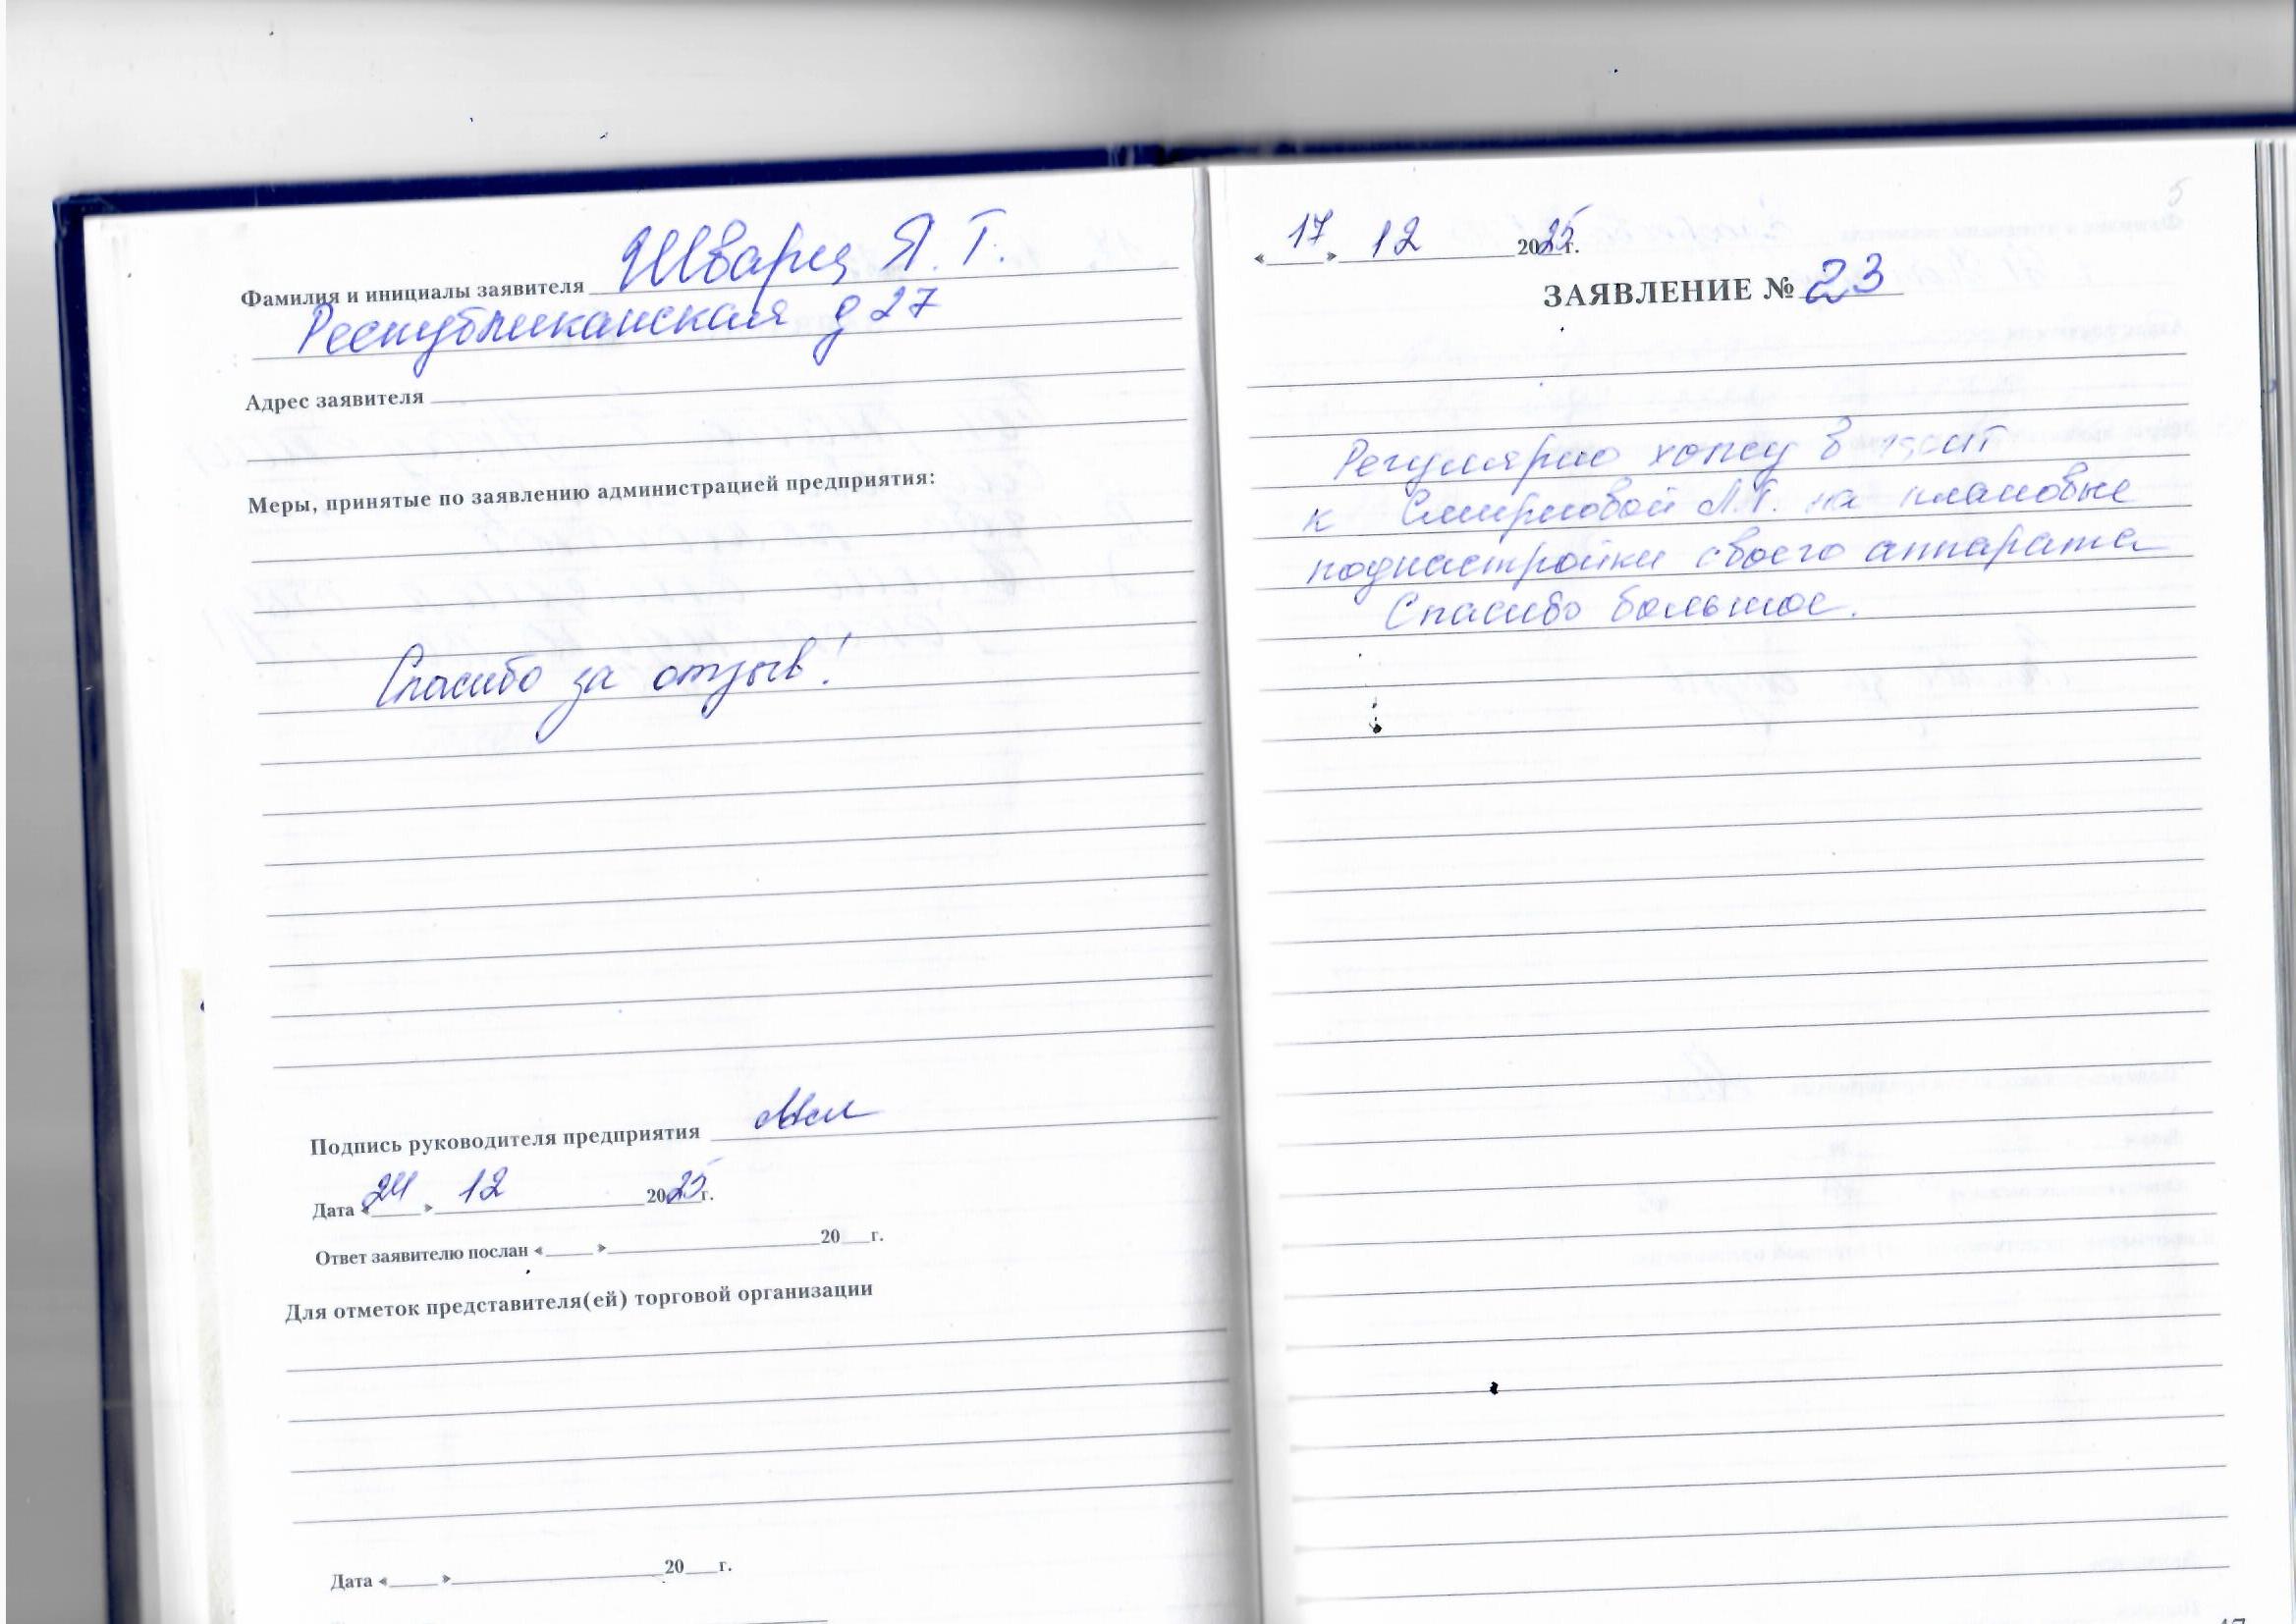 Фамилия и инициалы заявителя Шварц Я. Т.
Республиканская д 27
Адрес заявителя
Меры, принятые по заявлению администрацией предприятия:
Спасибо за отзыв!
Подпись руководителя предприятия
Дата «24» 12 2025 г.
Ответ заявителю послан «____» ____ 20__г.
Для отметок представителя(ей) торговой организации
Дата «____» ____ 20__г.
5
«17» 12 2025 г.
ЗАЯВЛЕНИЕ № 23
Регулярно хожу в
к Смирновой на плановые
поднастройки своего аппарата
Спасибо большое.